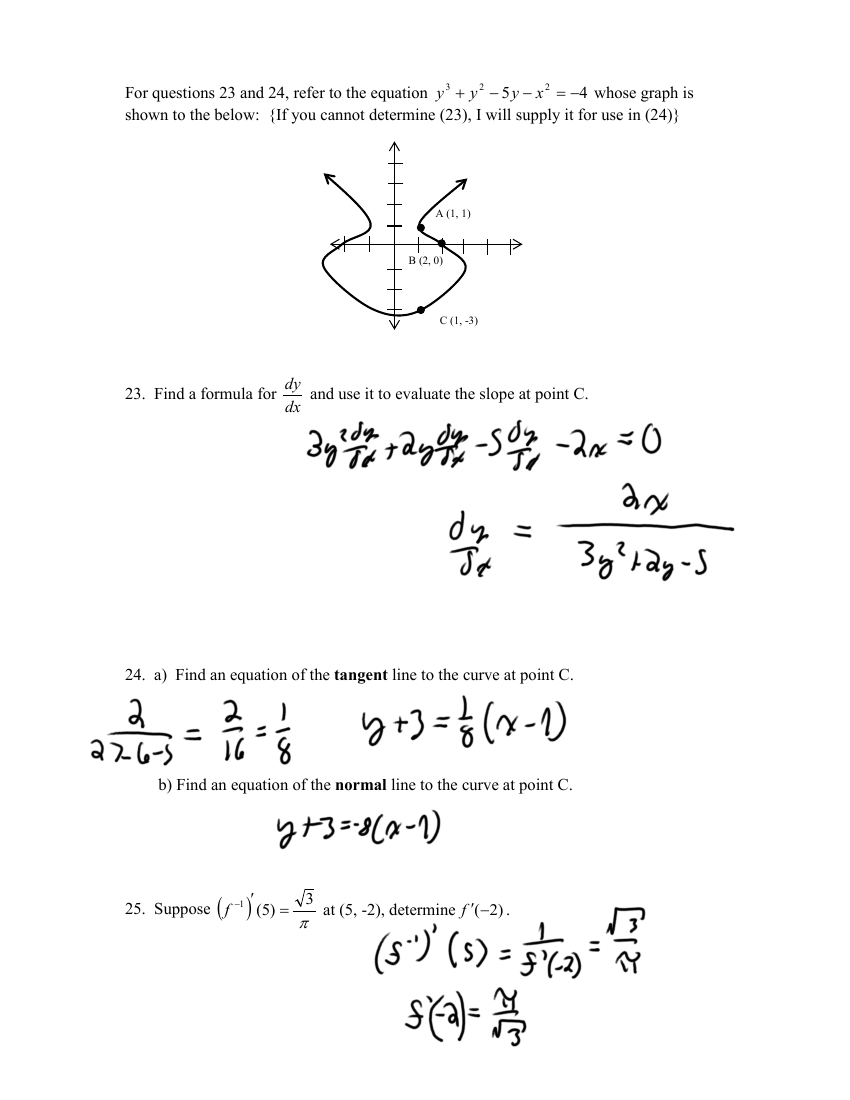 For questions 23 and 24, refer to the equation y³ + y² − 5y − x² = −4 whose graph is
shown to the below: {If you cannot determine (23), I will supply it for use in (24)}
A (1, 1)
B (2, 0)
C (1, -3)
23. Find a formula for dy/dx and use it to evaluate the slope at point C.
3y² dy/dx + 2y dy/dx − 5 dy/dx − 2x = 0
dy/dx = 2x/(3y² + 2y − 5)
24. a) Find an equation of the tangent line to the curve at point C.
2/(27−6−5) = 2/16 = 1/8 y + 3 = 1/8 (x − 1)
b) Find an equation of the normal line to the curve at point C.
y + 3 = -8(x − 1)
25. Suppose (f⁻¹)′(5) = √3/π at (5, -2), determine f′(−2).
(f⁻¹)′(5) = 1/f′(−2) = √3/π
f′(−2) = π/√3